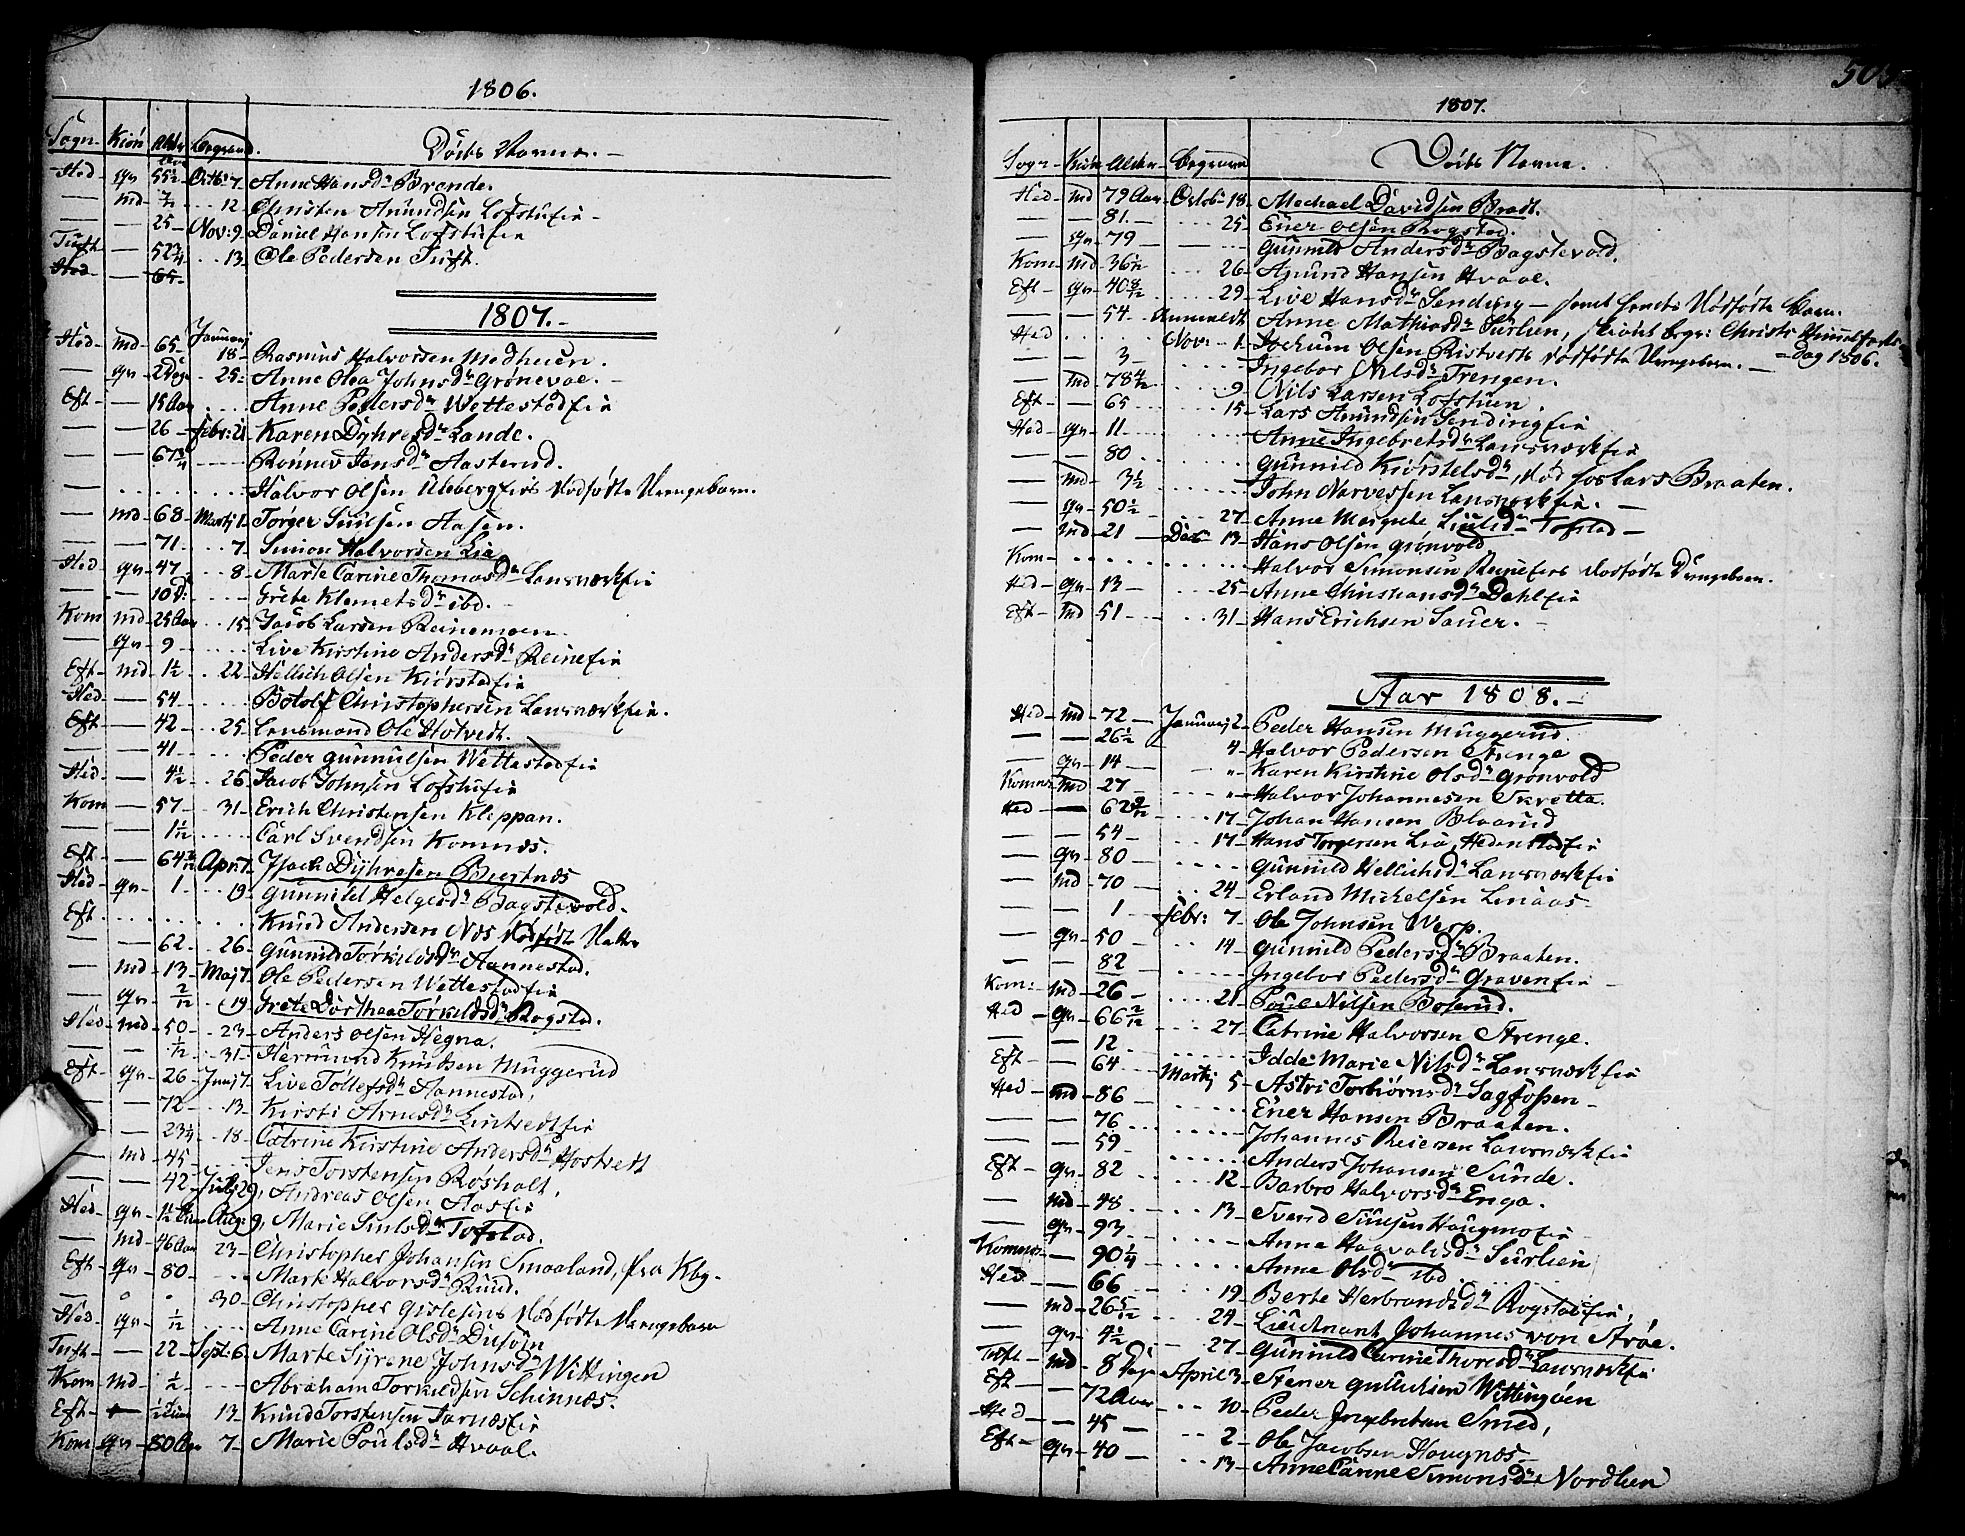 1806.
Sogn Kiön Alder Begravd. Döds Navne.
Hed qv 55½ Octb: 7 Anne Hansdr Brende.
— md 7/12 12 Christen Amundsen Lofstufie
— — 25 Nov: 9 Daniel Hansen Lofstufie
Tuft — 52¾ 13 Ole Pedersen Tuft.
Hed — 65
1807.
Hed md 65 Januarj 18 Rasmus Halvorsen Medhuen.
— qv 2 Dage 25 Anne Olea Johnsdr Grönevoe.
Eft — 15 Aar Anne Pedersdr Wettestadfie
— — 26 Febr: 21 Karen Dyhresdr Lande.
— — 67¾ Rönnev Jensdr Aasterud.
Halvor Olsen Ulebergfies Nödfödte Drengebarn.
— md 68 Martj 1 Torger Siulsen Aasen.
— — 71 7 Simon Halvorsen Lia
Hed qv 47 8 Marte Carine Thomasdr Lausnæskfie
— — 10 D: Grete Klemetsdr ibd.
Kom md 25 Aar 15 Jacob Larsen Reinemoen.
— qv 9 Live Kirstine Andersdr Reinefie
Eft md 1½ 22 Hellich Olsen Kiörstadfie
Hed — 54 Botolf Christophersen Lausnæskfie.
Eft — 42 25 Lensmand Ole Hotvedt.
— — 41 Peder Gunnulsen Wettestadfie
Hed — 4½ 26 Jacob Johnsen Lofstufie
Kom — 57 31 Erich Christensen Klippan.
— — 1½ Carl Svendsen Komnæs.
Eft — 64 Apr: 1 Isach Dyhresen Buertnæs
Hed qv 1 19 Gunnild Helgesdr Bagstevold.
Eft Knud Andersen Næs Nödfödte Datter
— — 62 26 Gunnild Torkildsdr Aannestad.
— md 13 Maj 7 Ole Pedersen Wettestadfie
— qv 2/12 19 Grete Dorthea Torkildsdr Rogstad.
Hed md 50 23 Anders Olsen Hegna.
— — 1/12 31 Hermund Knudsen Muggerud
Eft qv 26 Junj 7 Live Tollefsdr Aannestad,
— — 72 13 Kirsti Arnesdr Lintvedtfie
— — 23¼ 18 Catrine Kirstine Andersdr Hostvedt
— md 45 Jens Torstensen Rösholt,
— — 42 Julj 29, Andreas Olsen Aasfie
Hed qv 1½ Aug: 9, Marie Siulsdr Tofstad.
— md 46 Aar 23 Christopher Johansen Smaaland, fra Kbg.
Eft qv 80 Marte Halvorsdr Ruud.
— 30 Christopher Gislesens Nödfödte Drengebarn
Hed qv 1/12 Anne Carine Olsdr Dusöjn
Tuft — 22 Sept: 6 Marte Syrene Johnsdr Wittingen
Kom md ½ Abraham Torkildsen Schinnæs.
Eft 13 Knud Torstensen Jarnæsfie
Kom qv 80 Aar 7 Marie Poulsdr Hvaal.
1807.
Sogn Kiön Alder Begravne Döds Navne.
Hed md 79 Aar Octob: 18 Mechael Davidsen Bradt.
— — 81 25 Ener Olsen Rogstad.
— qv 79 Gunnild Andersdr Bagstevold.
Kom md 36½ 26 Amund Hansen Hvaal.
Eft qv 40 8/12 29 Live Hansdr Sending — samt hendes Nödfödte Barn.
— — 54 Anmeldt Anne Mathiasdr Surlien, skient begr: Christi Himmelfarts-
Hed Nov: 1 Jochum Olsen Ristvedts Nödfödte Drengebarn. — Dag 1806.
— — 3 Ingebor Nilsdr Trengen.
— md 78 4/12 9 Nils Larsen Lofthuen.
Eft — 65 15 Lars Amundsen Sendingfie
Hed qv 11 Anne Ingebretsdr Lausnæskfie
— — 80 Gunnild Kiörstelsdr, död hos Lars Braaten.
— md 3½ John Narvesen Lausnæskfie.
— qv 50½ 27 Anne Mergrete Siulsdr Tofstad
— md 21 Dec 13 Hans Olsen Grönvold
Kom Halvor Simonsen Reinefies Nödfödte Drengebarn.
Hed qv 13 25 Anne Christiansdr Dahlfie
Eft md 51 31 Hans Erichsen Sauer.
Aar 1808.
Hed md 72 Januarj 2 Peder Hansen Muggerud.
— — 26½ 4 Halvor Pedersen Strenge
— qv 14 " Karen Kirstine Olsdr Grönvold
Komnæs md 27 " Halvor Johannesen Skretta.
Hed — 62 17 Johan Hansen Blaarud
— — 54 17 Hans Torgersen Lia, Hedenstadfie
— qv 80 Gunnild Hellichsdr Lausnæskfie
— md 70 24 Erland Michelsen Linaas
— — 1 Febr: 7 Ole Johnsen Wesp.
— qv 50 14 Gunnild Pedersdr Braaten.
— — 82 Ingebor Pedersdr Gravenfie
Kom: md 26 21 Poul Nilsen Boserud.
Hed qv 66 2/12 27 Catrine Halvorsen Strenge.
— — 12 Idde Marie Nilsdr Lausnæskfie
Eft — 64 Martj 5 Astri Torbiörnsdr Sagfossen
Hed md 86 Ener Hansen Braaten.
— — 76 Johannes Reiersen Lausnæskfie
— — 59 Anders Johansen Sunde.
Eft qv 82 12 Barbro Halvorsdr Enga.
— md 48 13 Svend Siulsen Haugmofie
— qv 93 Anne Haavalsdr Surlien
Komnæs — 90¼ Anne Olsdr ibd
Hed — 66 19 Berte Herbrandsdr Rogstadfie,
— md 26 5/12 24 Lieutnant Johannes von Ströe.
— qv 4½ 27 Gunnild Carine Thoresdr Lausnæskfie
Tuft md 8 Dage April 3 Stener Gulliksen Wittingöen
Eft — 72 Aar 10 Peder Ingebretsen Smed,
Hed — 45 2 Ole Jacobsen Haugnæs
Eft qv 40 13 Anne Carine Simonsdr Nordlien